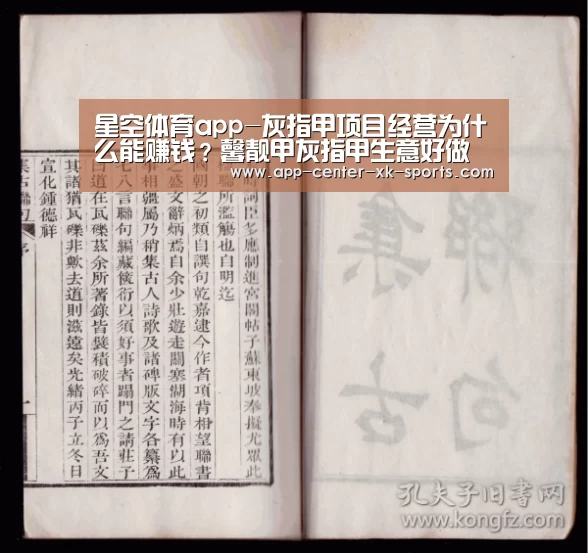 星空体育app-灰指甲项目经营为什
么能赚钱？馨靓甲灰指甲生意好做
www.app-center-xk-sports.com
時詞臣多應制進宮閣帖子蘇東坡奉擬尤眾此
聯所濫觴也自明迄
國朝之初類自譔句乾嘉逮今作者項背相望聯書
之盛文辭炳焉自余少壯遊走關塞湖海時有以此
事相彊屬乃稍集古人詩歌及諸碑版文字各纂為
七八言聯句編藏篋衍以須好事者踢門之請莊子
曰道在瓦礫茲余所著錄皆襞積破碎而以為吾文
其諸猶瓦礫非歟去道則滋遠矣光緒丙子立冬日
宣化鍾德祥
集古聯句
序
一
聯集
句古
孔夫子旧书网
www.kongfz.com